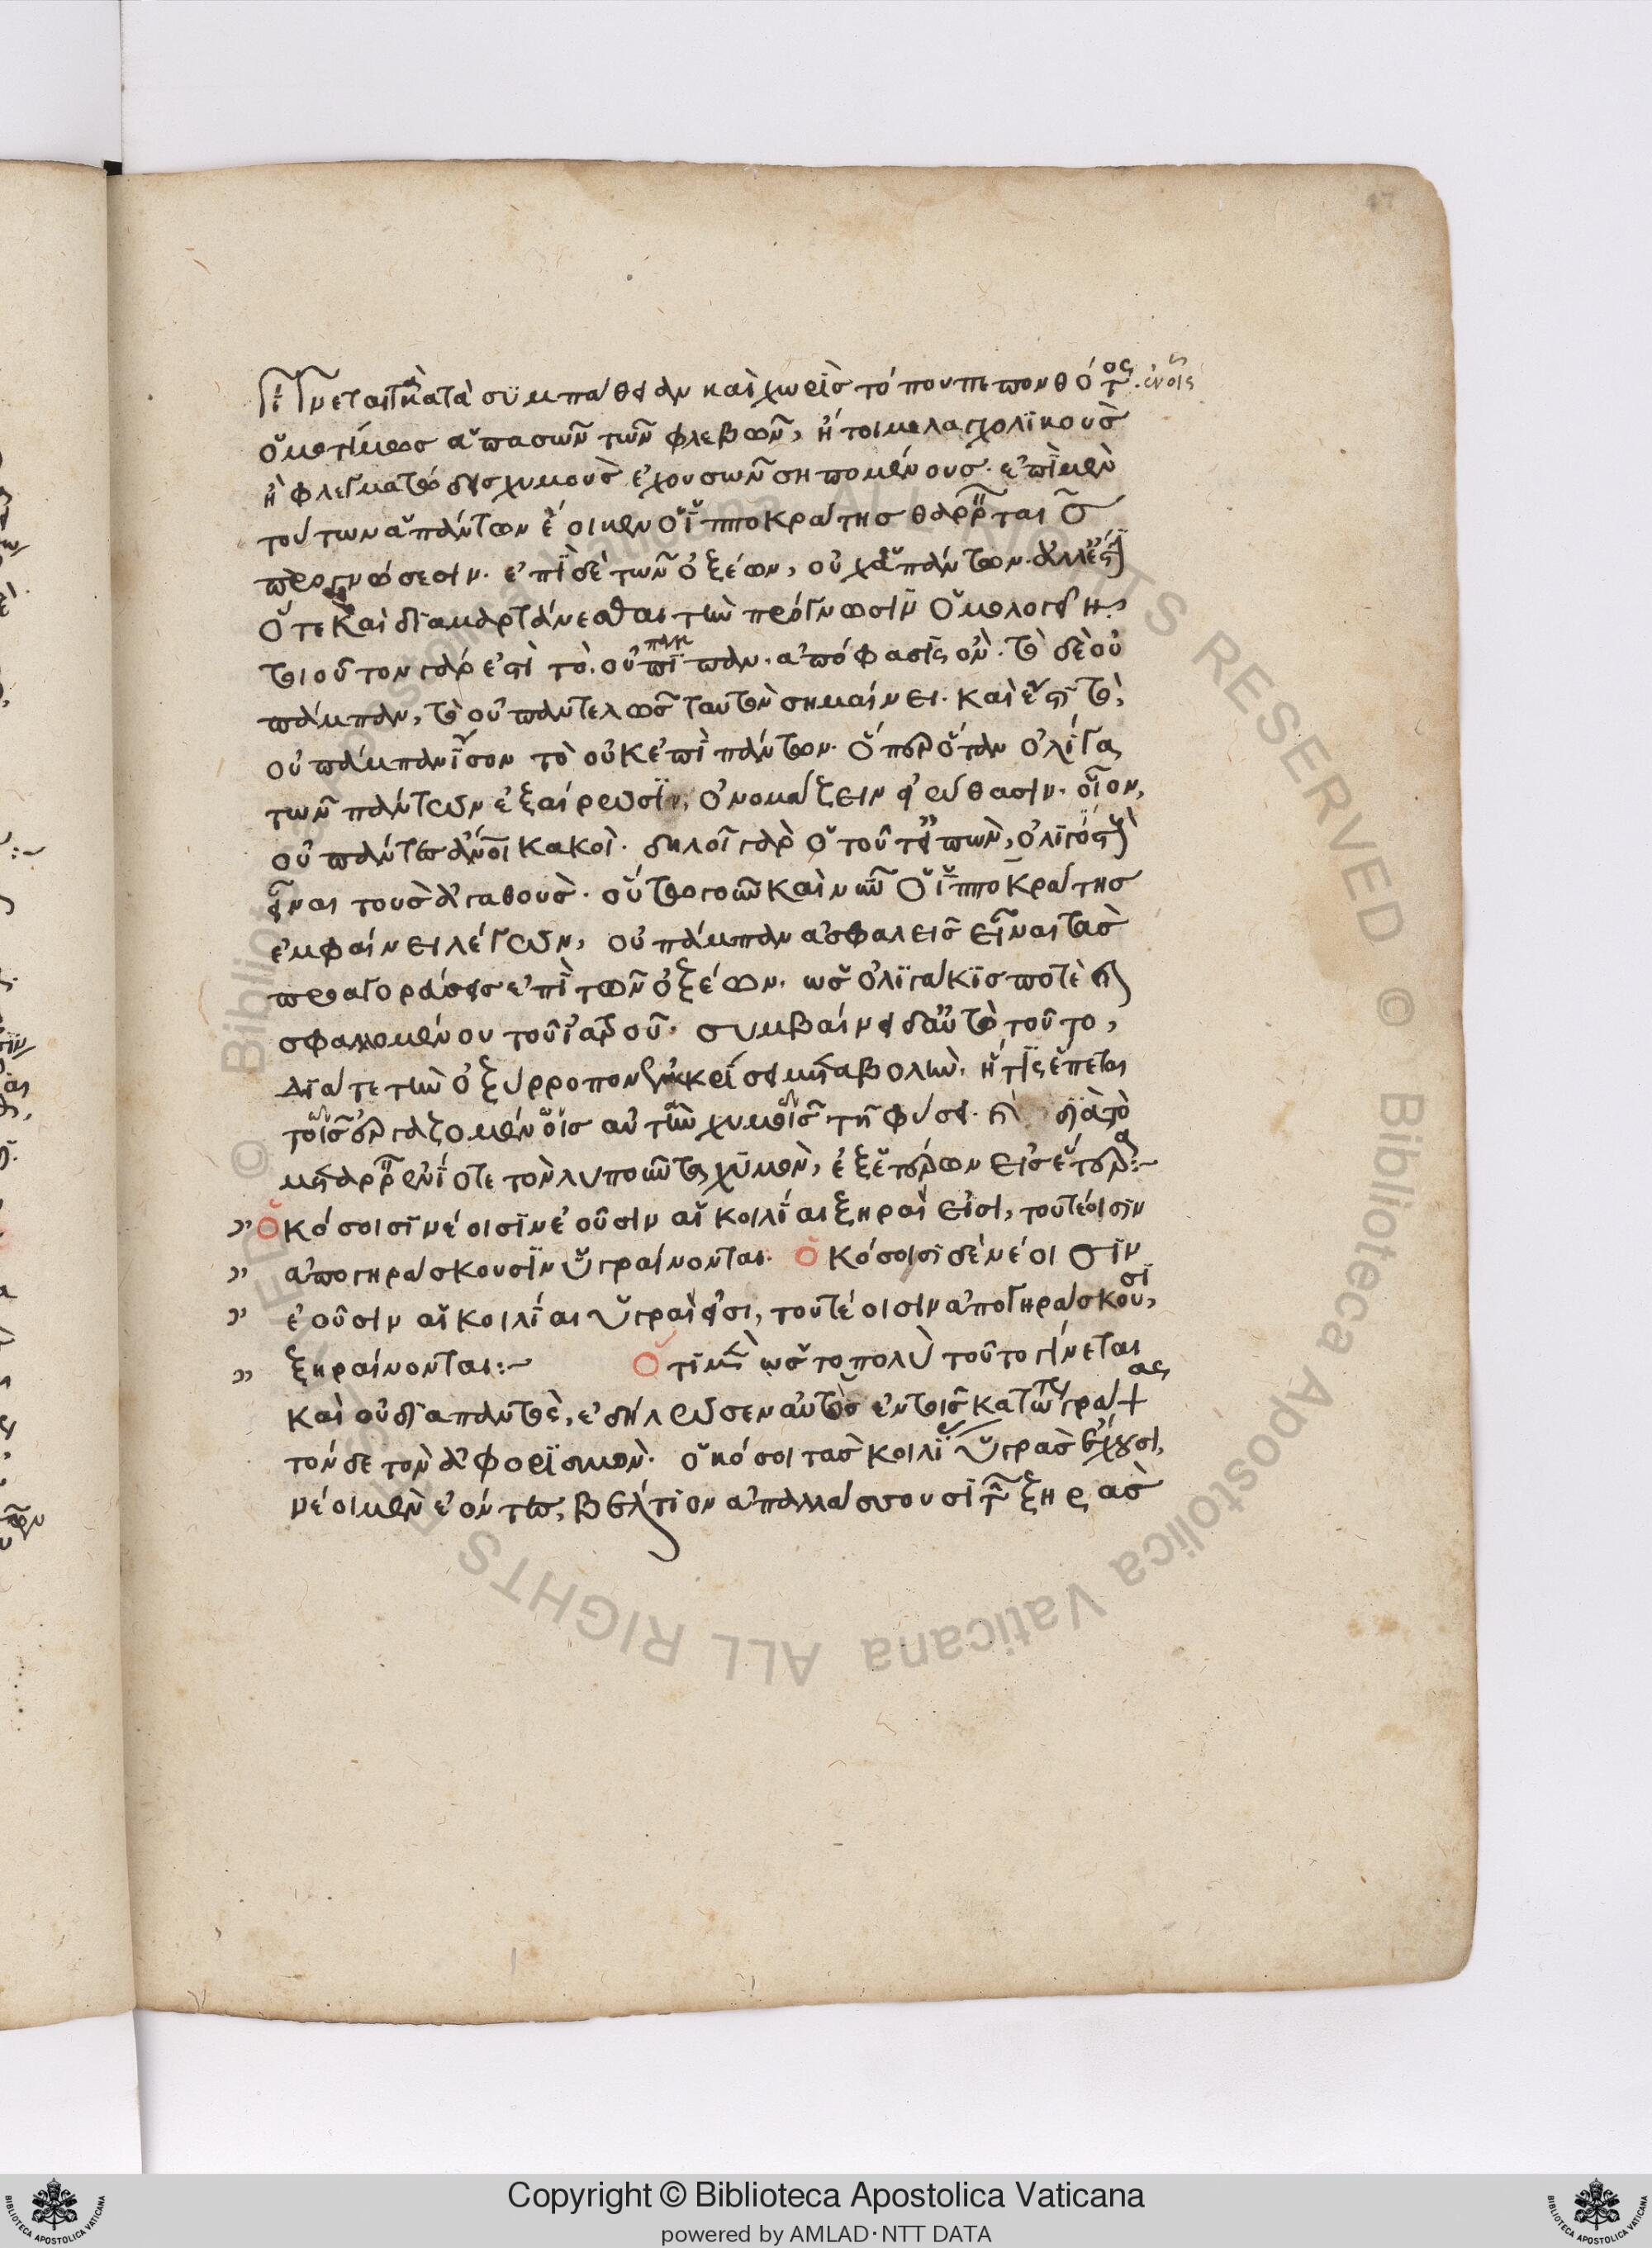 γίγνεται κατὰ συμπάθειαν καὶ χωρὶς τόπου πεπονθότος. ἐνοῖς
ὁμοτίμως ἁπασῶν τῶν φλεβῶν, ἤτοι μελαγχολικοὺς
ἢ φλεγματώδεις χυμοὺς ἐχουσῶν σηπομένους. ἐπὶ μὲν
τούτων ἁπάντων ἔοικεν ὁ ἱπποκράτης θαρρεῖν ταῖς
προγνώσεσιν. ἐπὶ δὲ τῶν ὀξέων, οὐχ ἁπάντων. ἀλλ' ἔστιν
ὅτε καὶ διαμαρτάνεσθαι τὴν πρόγνωσιν ὁμολογεῖ.
τοιοῦτον γάρ ἐστι τὸ οὐ πάμπαν. ἀπόφασις ὂν. τὸ δὲ οὐ
πάμπαν, τὸ οὐ παντελῶς ταυτὸν σημαίνει. καὶ ἔστι τὸ
οὐ πάμπαν ἴσον τὸ οὐκ ἐπὶ πάντων. ὅπερ ὅταν ὀλίγα
τῶν πάντων ἐξαίρωσιν, ὀνομάζειν εἰώθασιν. οἷον,
οὐ πάντες ἄνθρωποι κακοί. δηλοῖ γὰρ ὁ τοῦτ' εἰπὼν, ὀλίγους
εἶναι τοὺς ἀγαθούς. οὕτω γοῦν καὶ νῦν ὁ ἱπποκράτης
ἐμφαίνει λέγων, οὐ πάμπαν ἀσφαλεῖς εἶναι τὰς
προαγορεύσεις ἐπὶ τῶν ὀξέων. ὡς ὀλιγάκις ποτὲ καὶ
σφαλλομένου τοῦ ἰατροῦ. συμβαίνει δ' αὐτὸ τοῦτο,
διά τε τὴν ὀξύρροπον ἐν κρίσει μεταβολήν. ἥτις ἕπεται
τοῖς ἐργαζομένοις αὐτὴν χυμοῖς τῇ φύσει. καὶ διὰ τὸ
μεταρρεῖν ἐνίοτε τὸν λυποῦντα χυμὸν, ἐξ ἑτέρων εἰς ἕτερα:~
» Ὁκόσοισι νέοισιν ἐοῦσιν αἱ κοιλίαι ξηραί εἰσι, τουτέοισιν
» ἀπογηράσκουσιν ὑγραίνονται. Ὁκόσοισι δὲ νέοισιν
» ἐοῦσιν αἱ κοιλίαι ὑγραὶ εἰσι, τουτέοισιν ἀπογηράσκουσι,
» ξηραίνονται:~ Ὅτι μὲν ὡς τοπολὺ τοῦτο γίνεται
καὶ οὐ διαπαντὸς, ἐδήλωσεν αὐτὸς ἐν τοῖς κατωτέρω γράψας
τόνδε τὸν ἀφορισμὸν. ὁκόσοι τὰς κοιλίας ὑγρὰς ἔχουσι,
νέοι μὲν ἐόντες, βέλτιον ἀπαλλάσσουσι τῶν ξηρὰς